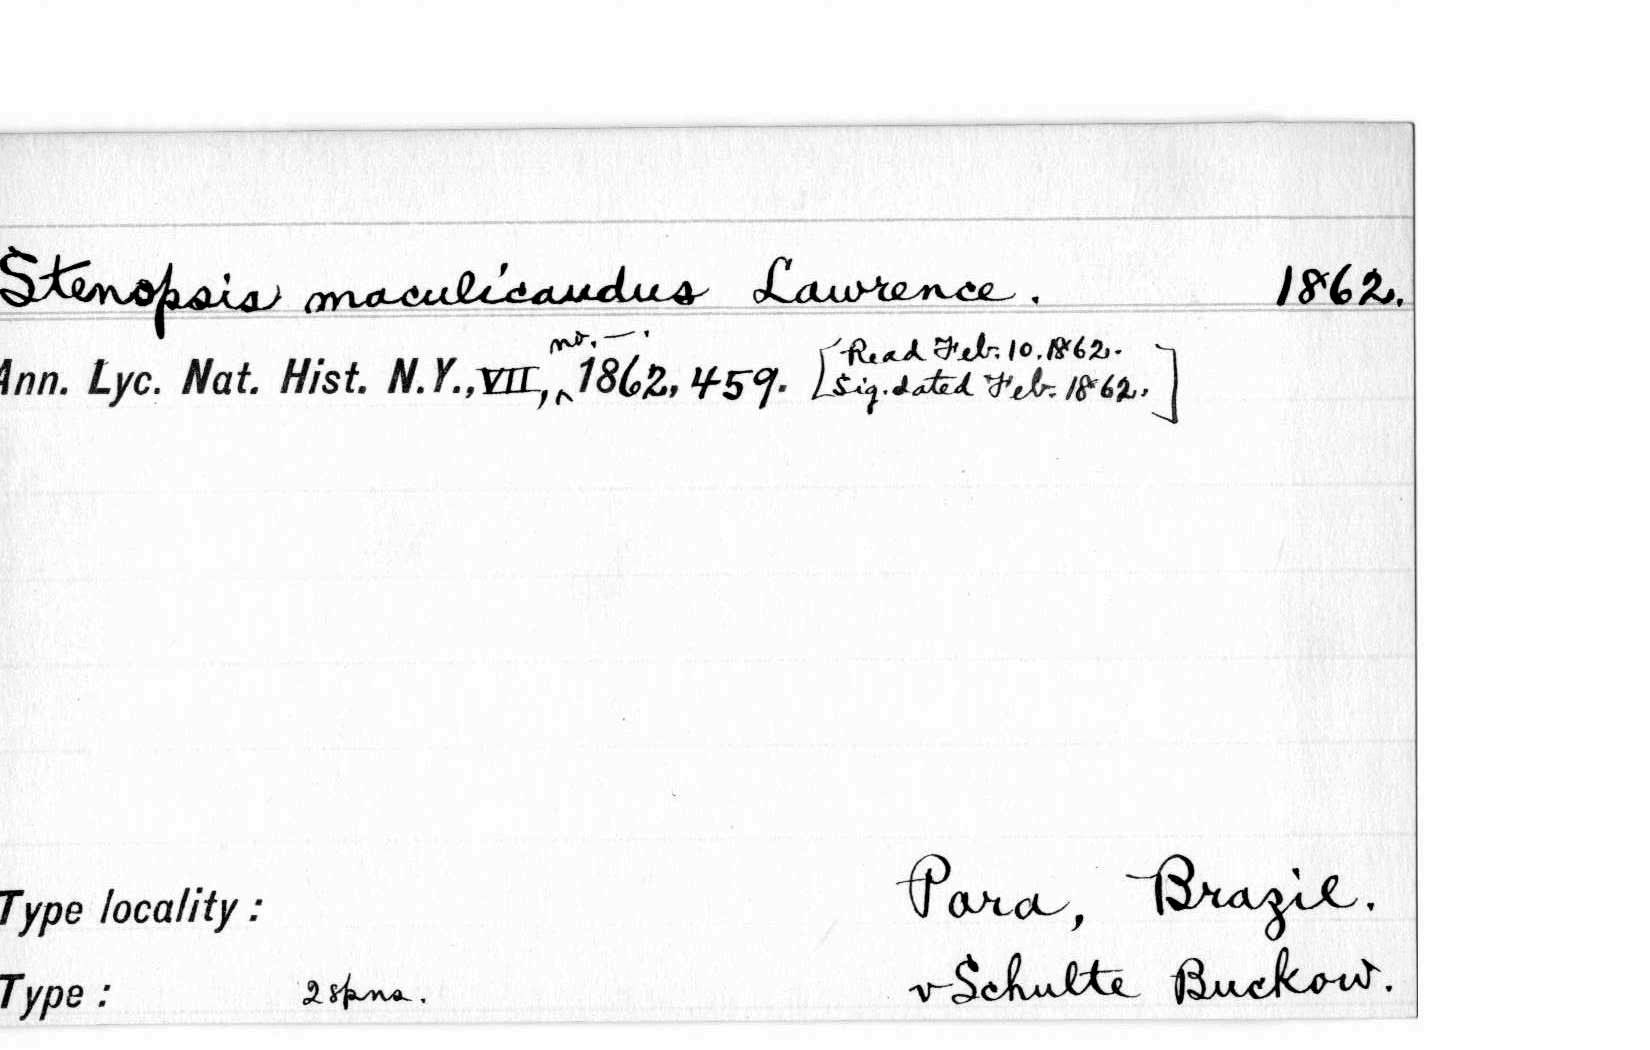 Stenopsis maculicaudus Lawrence. 1862.
Ann. Lyc. Nat. Hist. N.Y., VII, no. —. 1862, 459. [Read Feb. 10. 1862.
Sig. dated Feb. 1862.]
Type locality: Para, Brazil.
Type: 2 spns. v Schulte Buckow.